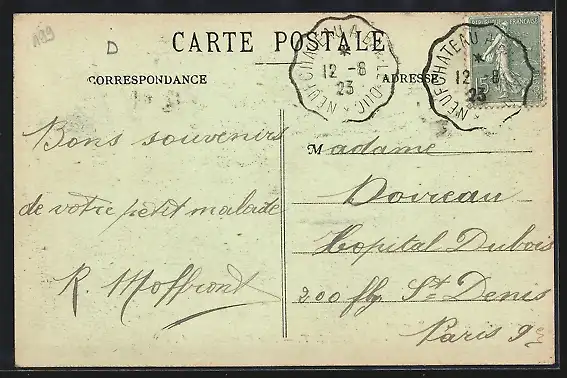 199
D
CARTE POSTALE
CORRESPONDANCE
ADRESSE
NEUFCHATEAU A BAR-LE-DUC
12 - 8
23
NEUFCHATEAU A
12 8
23
REPUBLIQUE FRANCAISE
15
Bons souvenirs
de votre petit malade
R.
Madame
Doireau
Hopital Dubois
200 fbg St Denis
Paris 9e